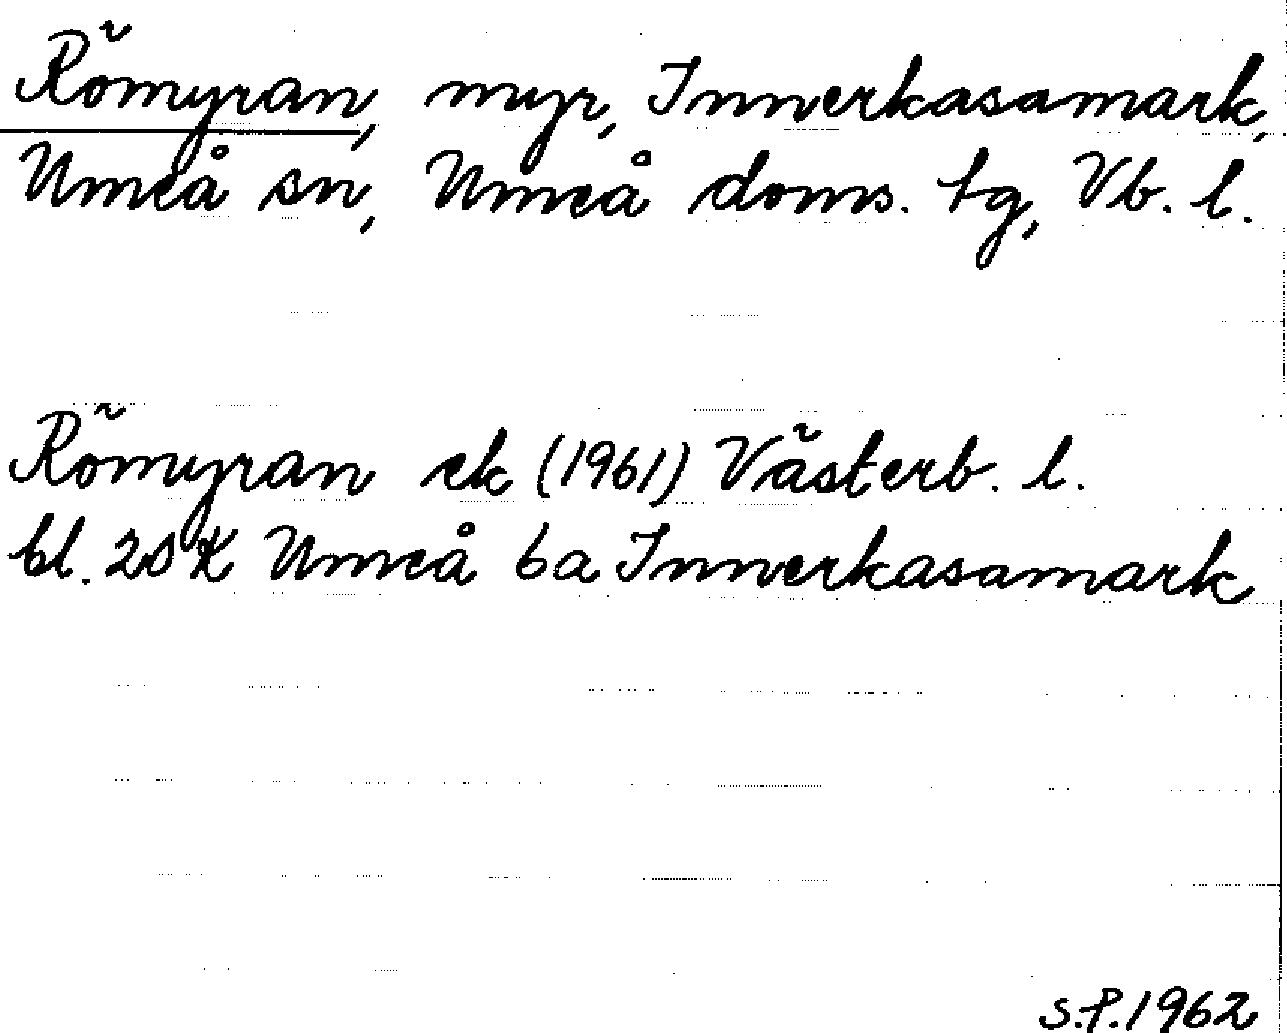 Römyran, myr, Innerkasamark,
Umeå sn, Umeå doms. tg, Vb. l.
Römyran ek (1961) Västerb. l.
bl. 20 K Umeå 6a Innerkasamark
S.P. 1962